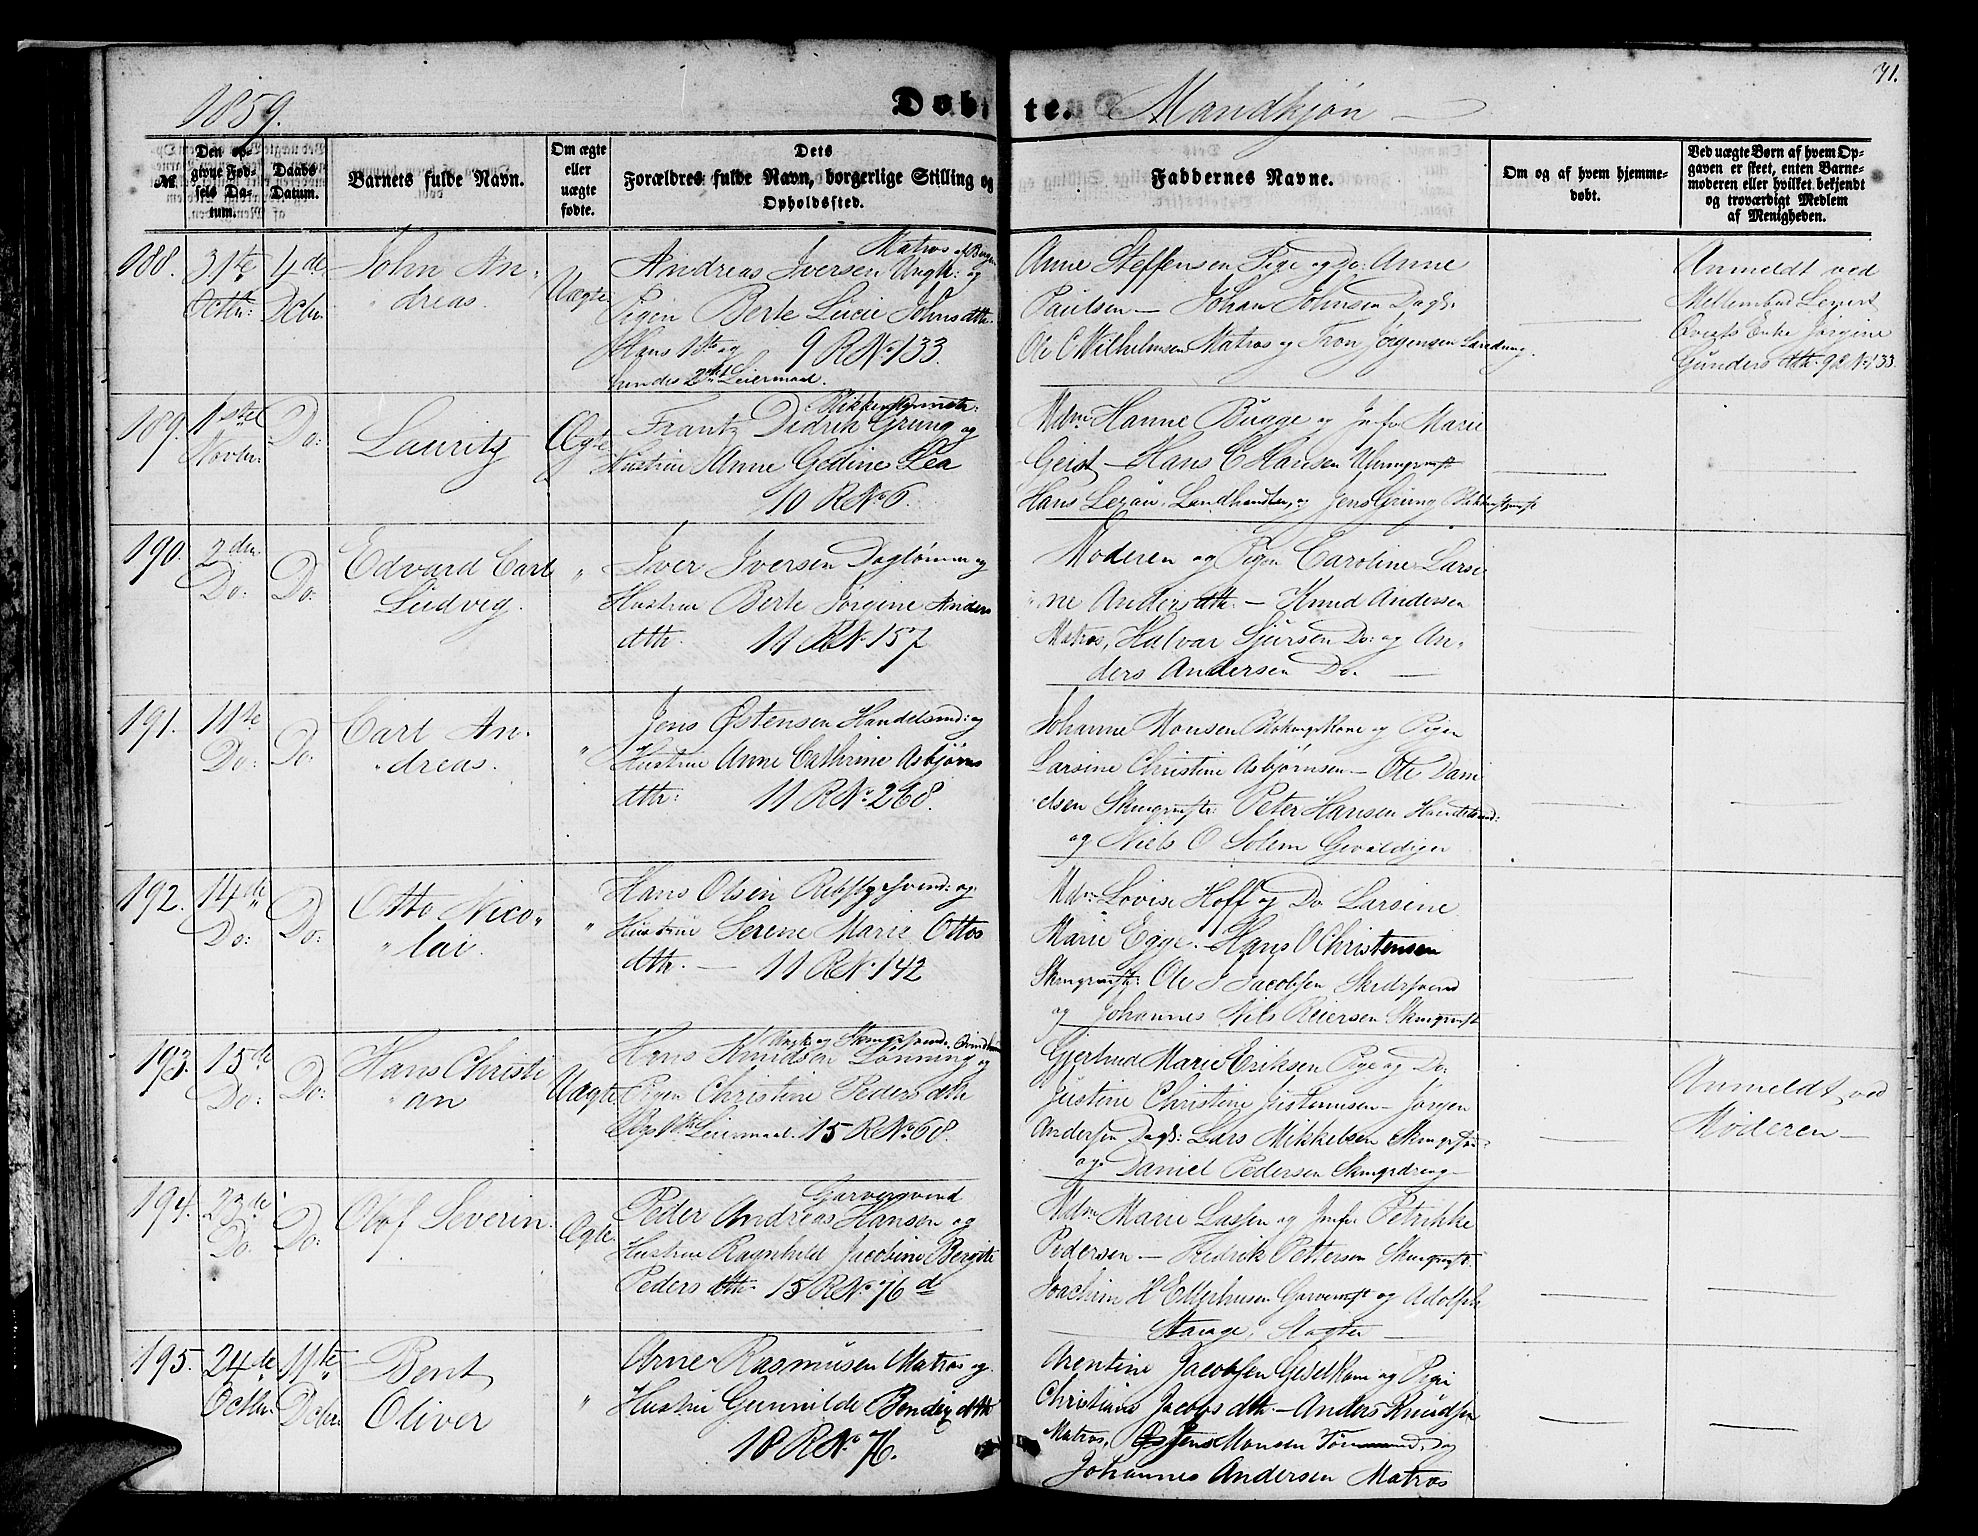 71.
1859.
Døbte. Mandkjøn —
№
Den opgivne Fødsels Datum.
Daabs Datum.
Barnets fulde Navn.
Om ægte eller uægte fødte.
Dets Forældres fulde Navn, borgerlige Stilling og Opholdssted.
Faddernes Navne.
Om og af hvem hjemmedøbt.
Ved uægte Børn af hvem Opgaven er skeet, enten Barnemoderen eller hvilket bekjendt og troværdigt Medlem af Menigheden.
188.
31te Octbr:
4de Debr.
John An-
dreas.
Uægte
Matros af Bergen
Andreas Iversen Ungk: og
Pigen Berte Lucie Johnsdth.
Hans 1ste og 9 R No 133.
hendes 2det Leiermaal.
Anne Steffensen Pige og Do: Anne
Paulsen — Johan Johnsen Dags:
Ole C Wilhelmsen Matros og Tron Jørgensen
Anmeldt ved
Enke Jørgine
Gunders dth: 9 R No 133
189.
1ste Novbr:
Do:
Lauritz
Ægte
Frantz Didrik Grung og
Hustrue Anne Gedine Lea
10 R No 6.
Mdm: Hanne Bugge og Jmfr Marie
Geist — Hans C Hansen
Hans Lezau, Landhandler, og Jens Grung
190.
2den Do:
Do:
Edvard Carl
Ludvig.
"
Iver Iversen Daglønner og
Hustrue Berte Jørgine Anders
dth. 11 R No 157
Moderen og Pigen Caroline Larsi
ne Andersdth. — Knud Andersen
Matros, Halvar Sjursen Do: og An-
ders Andersen Do. —
191.
11te Do:
Do:
Carl An-
dreas.
"
Jens Østensen Handelsmd: og
Hustrue Anne Cathrine Asbjørns
dth: 11 R No 268.
Johanne Monsen og Pigen
Larsine Christine Asbjørnsen — Ole Dani
elsen Skmgrmstr: Peter Hansen Handelsmd:
og Niels O Solem Gevaldiger
192.
14de Do:
Do:
Otto Nico-
lai.
"
Hans Olsen Rebslgrsvend: og
Hustrue Serene Marie Ottos
dth. — 11 R No 142
Mdm: Lovise Hoff og Do Larsine
Marie Egge. — Hans O Christensen
Skmgrmstr: Ole J Jacobsen Skrdrsvend
og Johannes Nils Reiersen Skmgrmstr
193.
15de Do:
Do:
Hans Christi
an
Uægte
Hans Knudsen Lønning og
Pigen Christine Pedersdth
Leiermaal. 15 R No 68.
Gjertrud Marie Eriksen Pige og Do.
Justine Christine — Jørgen
Andersen Dags: Lars Mikkelsen
og Daniel Pedersen Skmgrdreng —
Anmeldt ved
Moderen —
194.
23de Do
Do:
Olof Severin.
Ægte
Garversvend
Peder Andreas Hansen og
Hustrue Ragnhild Jacobine Bergite
Pedersdth. 15 R No 76 d
Mdm: Marie Lassen og Jmfr Petrikke
Pedersen — Fredrik Pettersen Skmgrmstr.
Joachim H Ellerhusen Garvermstr og Adolph
Stange, Slagter —
195.
24de Octbr.
11te Debr.
Bent
Oliver
"
Arne Rasmusen Matros og
Hustrue Gunnilde Bendixdth
18 R No 76.
Arentine Jacobsen og Pige
Christiane Jacobsdth. — Anders Knudsen
Matros, Jens Monsen og
Johannes Andersen Matros